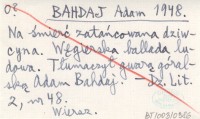 0? BAHDAJ Adam 1948.
Na śmierć zatańcowana dziw-
czyna. Węgierska ballada lu-
dowa. Tłumaczył gwarą góral-
ską Adam Bahdaj. - Dz. Lit.
2, nr 48.
Wiersz.